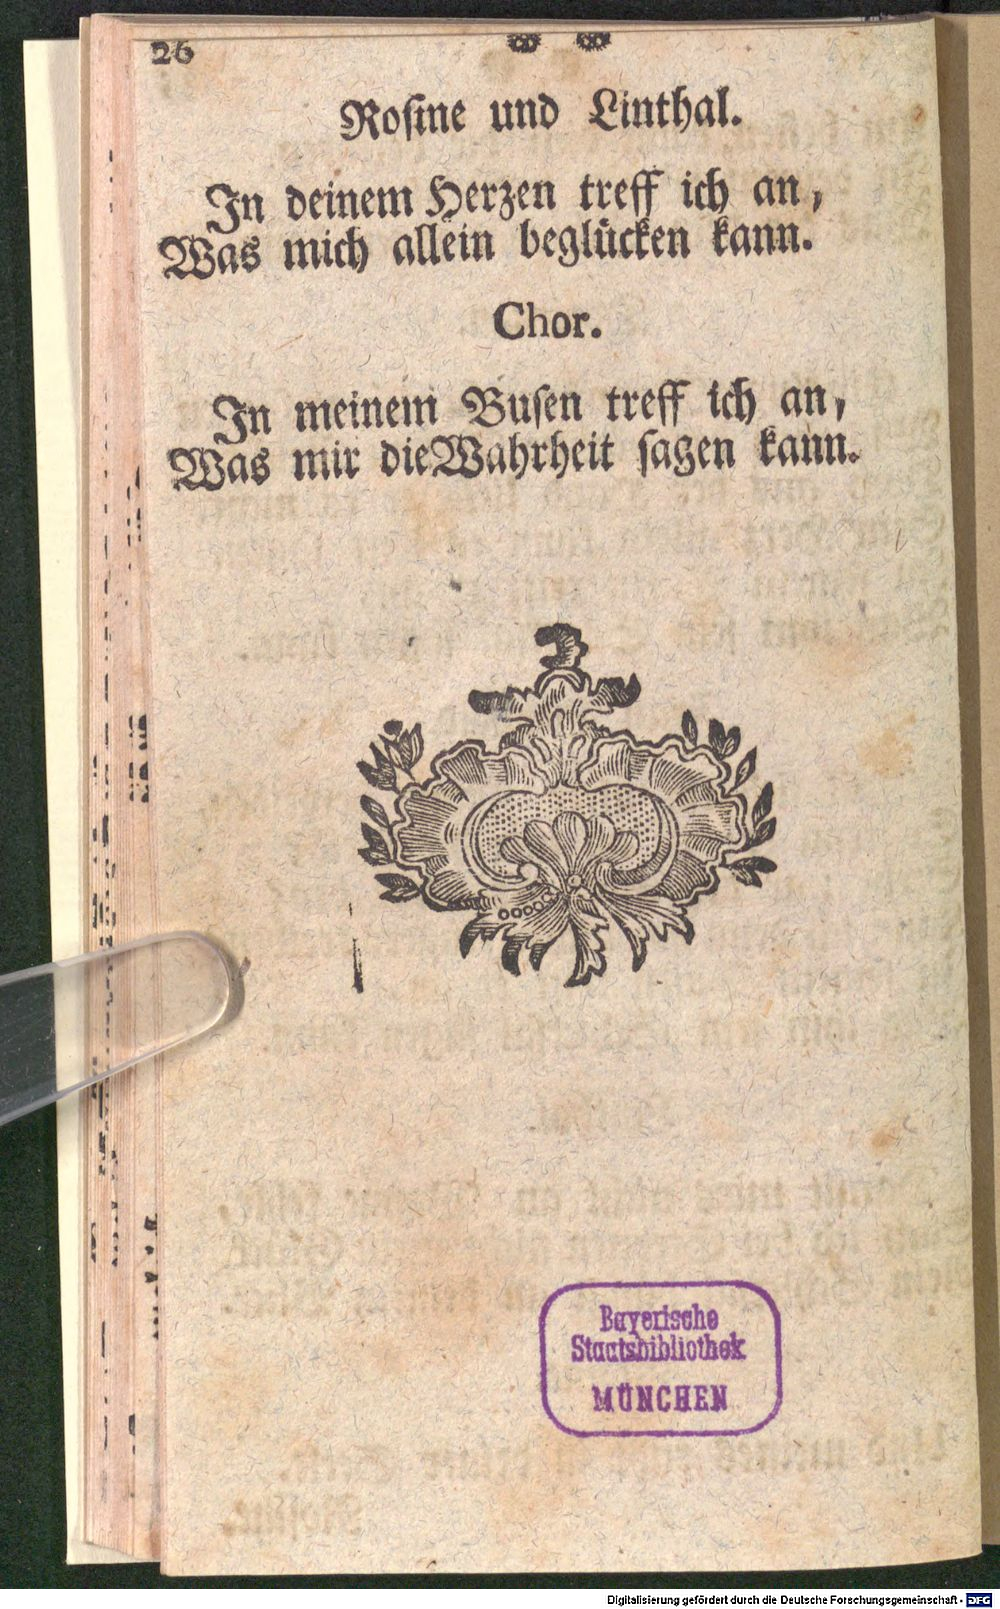 26
Rosine und Linthal.
In deinem Herzen treff ich an,
Was mich allein beglücken kann.
Chor.
In meinem Busen treff ich an,
Was mir die Wahrheit sagen kann.
Bayerische
Staatsbibliothek
MÜNCHEN
Digitalisierung gefördert durch die Deutsche Forschungsgemeinschaft - DFG